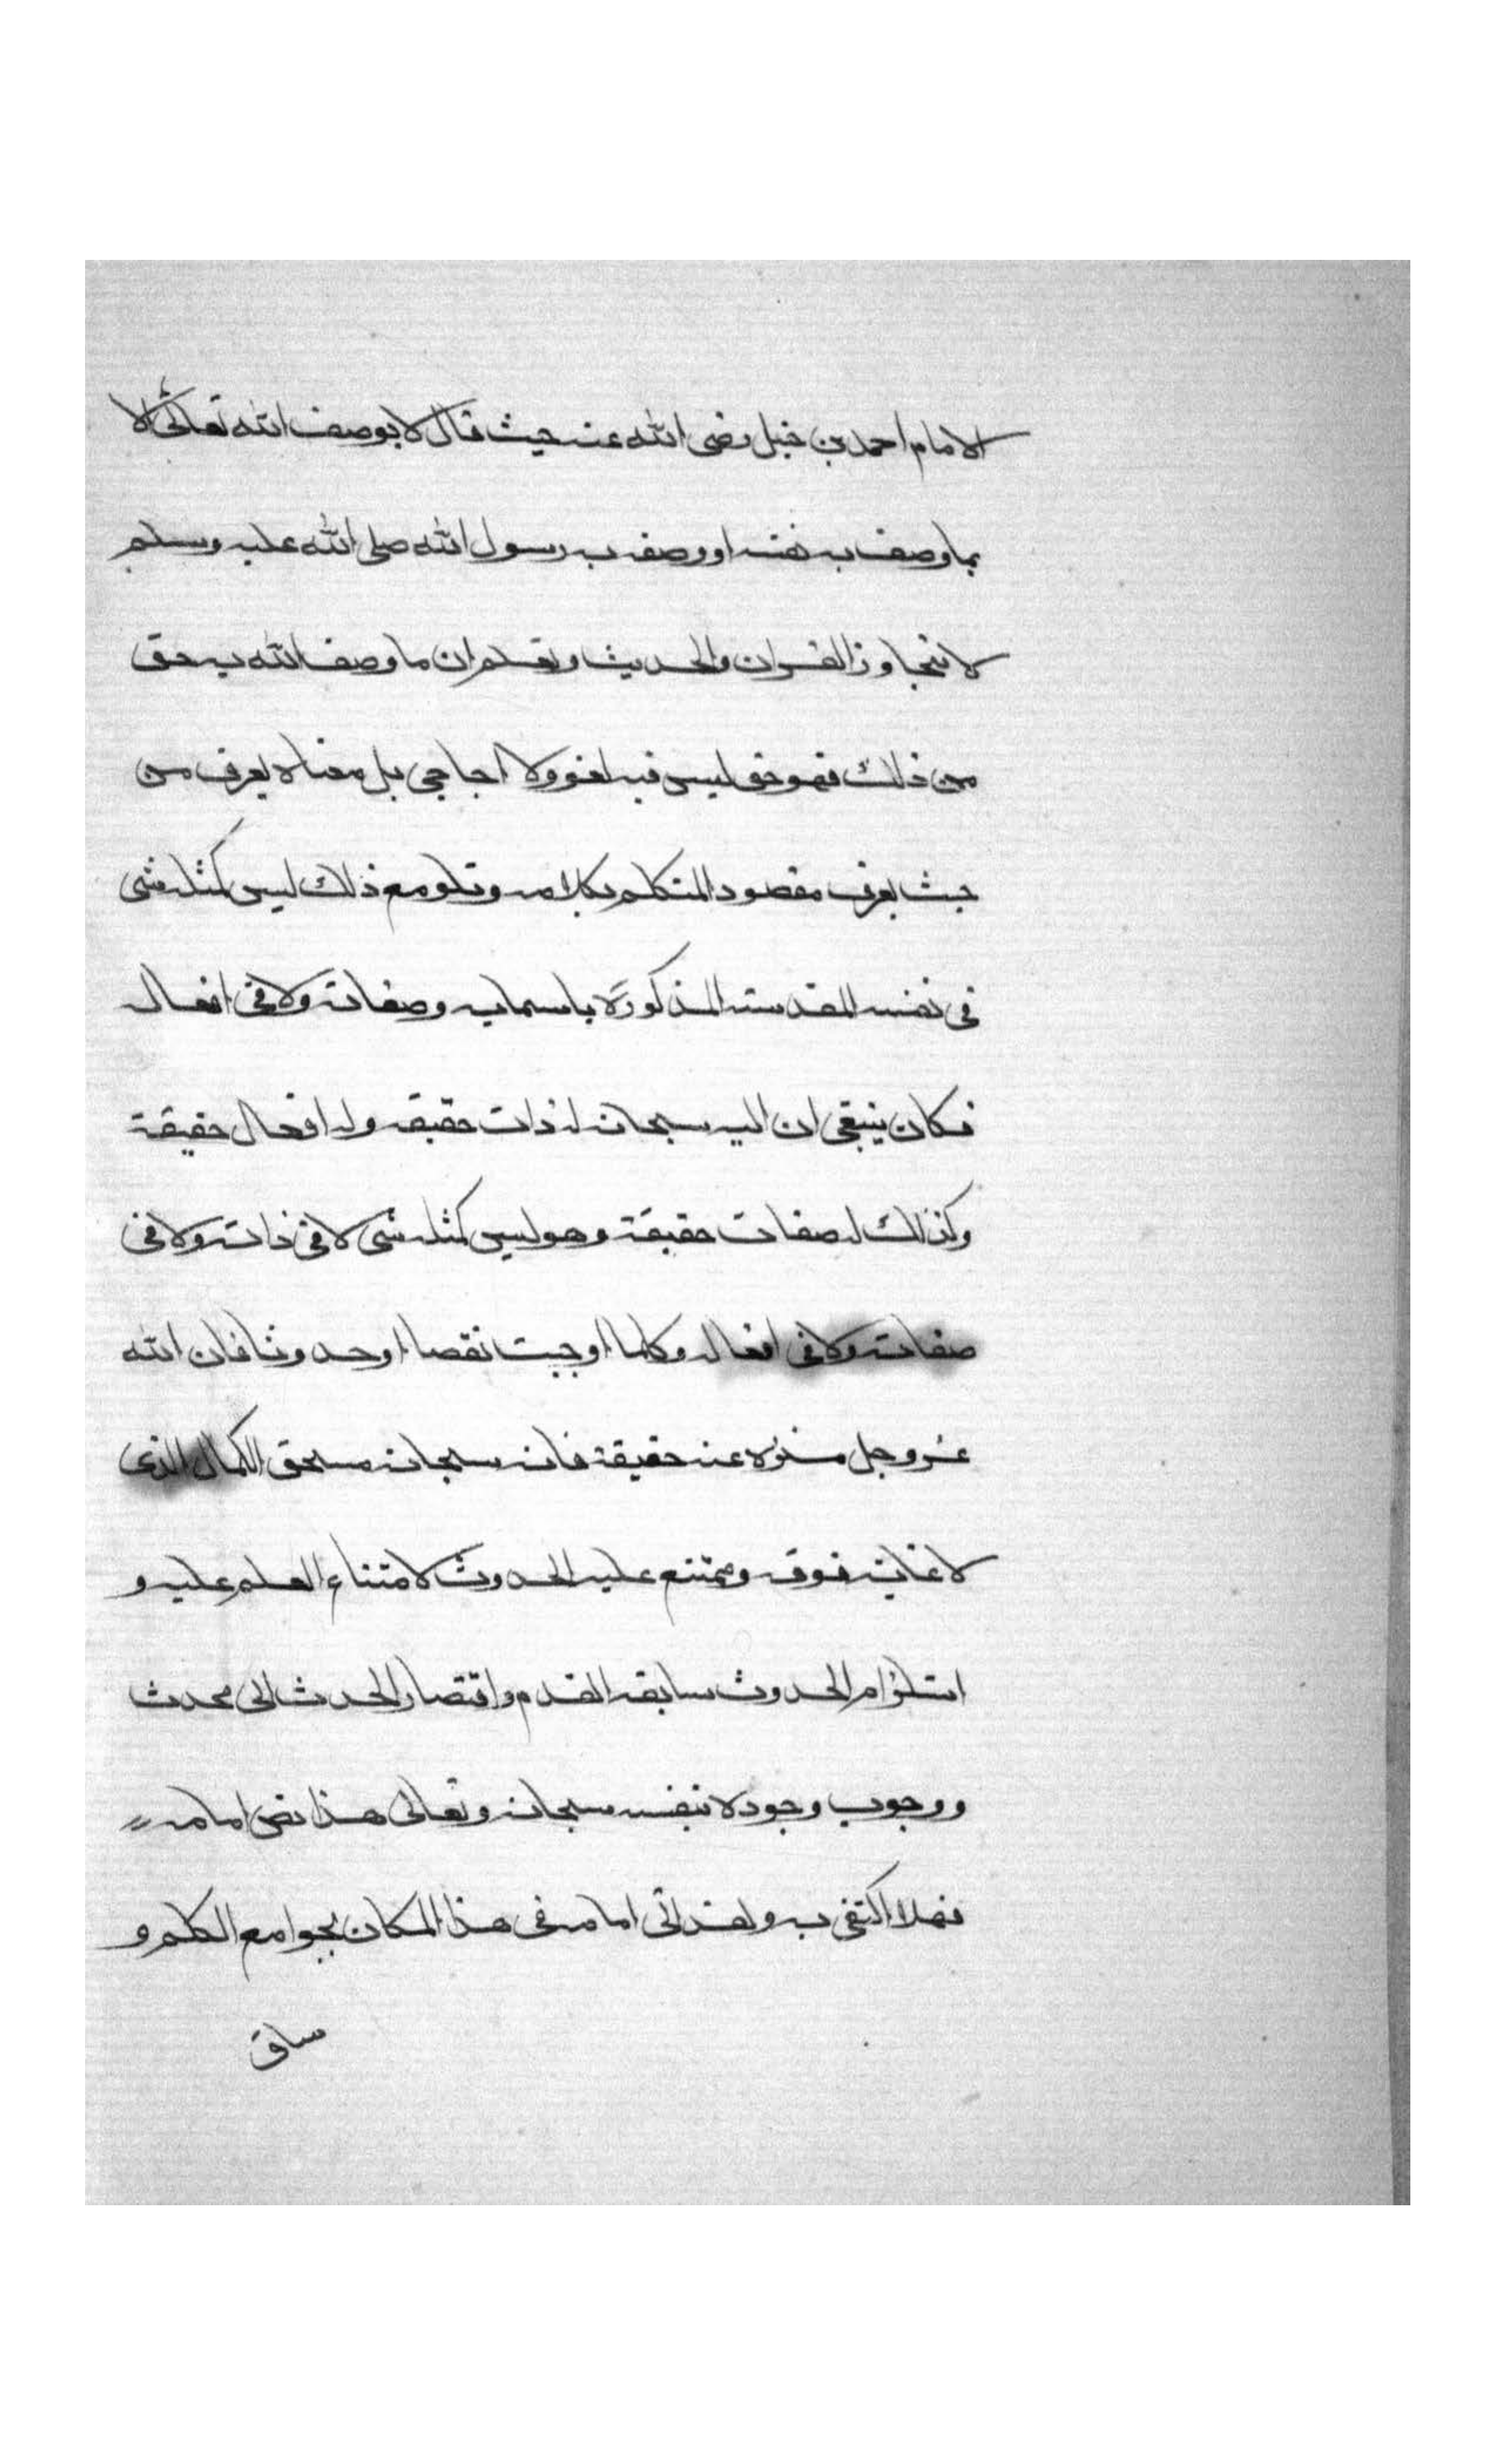 الامام احمد بن خبل رضى الله عنه حيث قال لا يوصف الله تعالى الا
بما وصف به نفسه او وصفه به رسول الله صلى الله عليه وسلم
لا يتجاوز القران والحديث ونعلم ان ما وصف الله به حق
من ذلك فهو حق ليس فيه لغو ولا احاجى بل معناه يعرف من
حيث يعرف مقصود المتكلم بكلامه وتلو مع ذلك ليس كمثله شى
فى نفسه المقدسته المذكورة باسمايه وصفاته ولا فى افعاله
فكان ينبغى ان اليه سبحانه له ذات حقيقه وله افعال حقيقة
وكذلك له صفات حقيقة وهو ليس كمثله شى لا فى ذاته ولا فى
صفاته ولا فى افعاله وكلما اوجبت نقصا او حدوثا فان الله
عز وجل منزه عنه حقيقة فانه سبحانه مسحق الكمال الذى
لا غاية فوقه وممتنع عليه الحدوث لامتناع العلم عليه و
استلزام الحدوث سابقه القدم واقتصار الحدث الى محدث
ووجوب وجوده بنفسه سبحانه وتعالى هذا نص امامه
فهلا اكتفى به ولقد اتى امامه فى هذا المكان بجوامع الكلم و
ساق